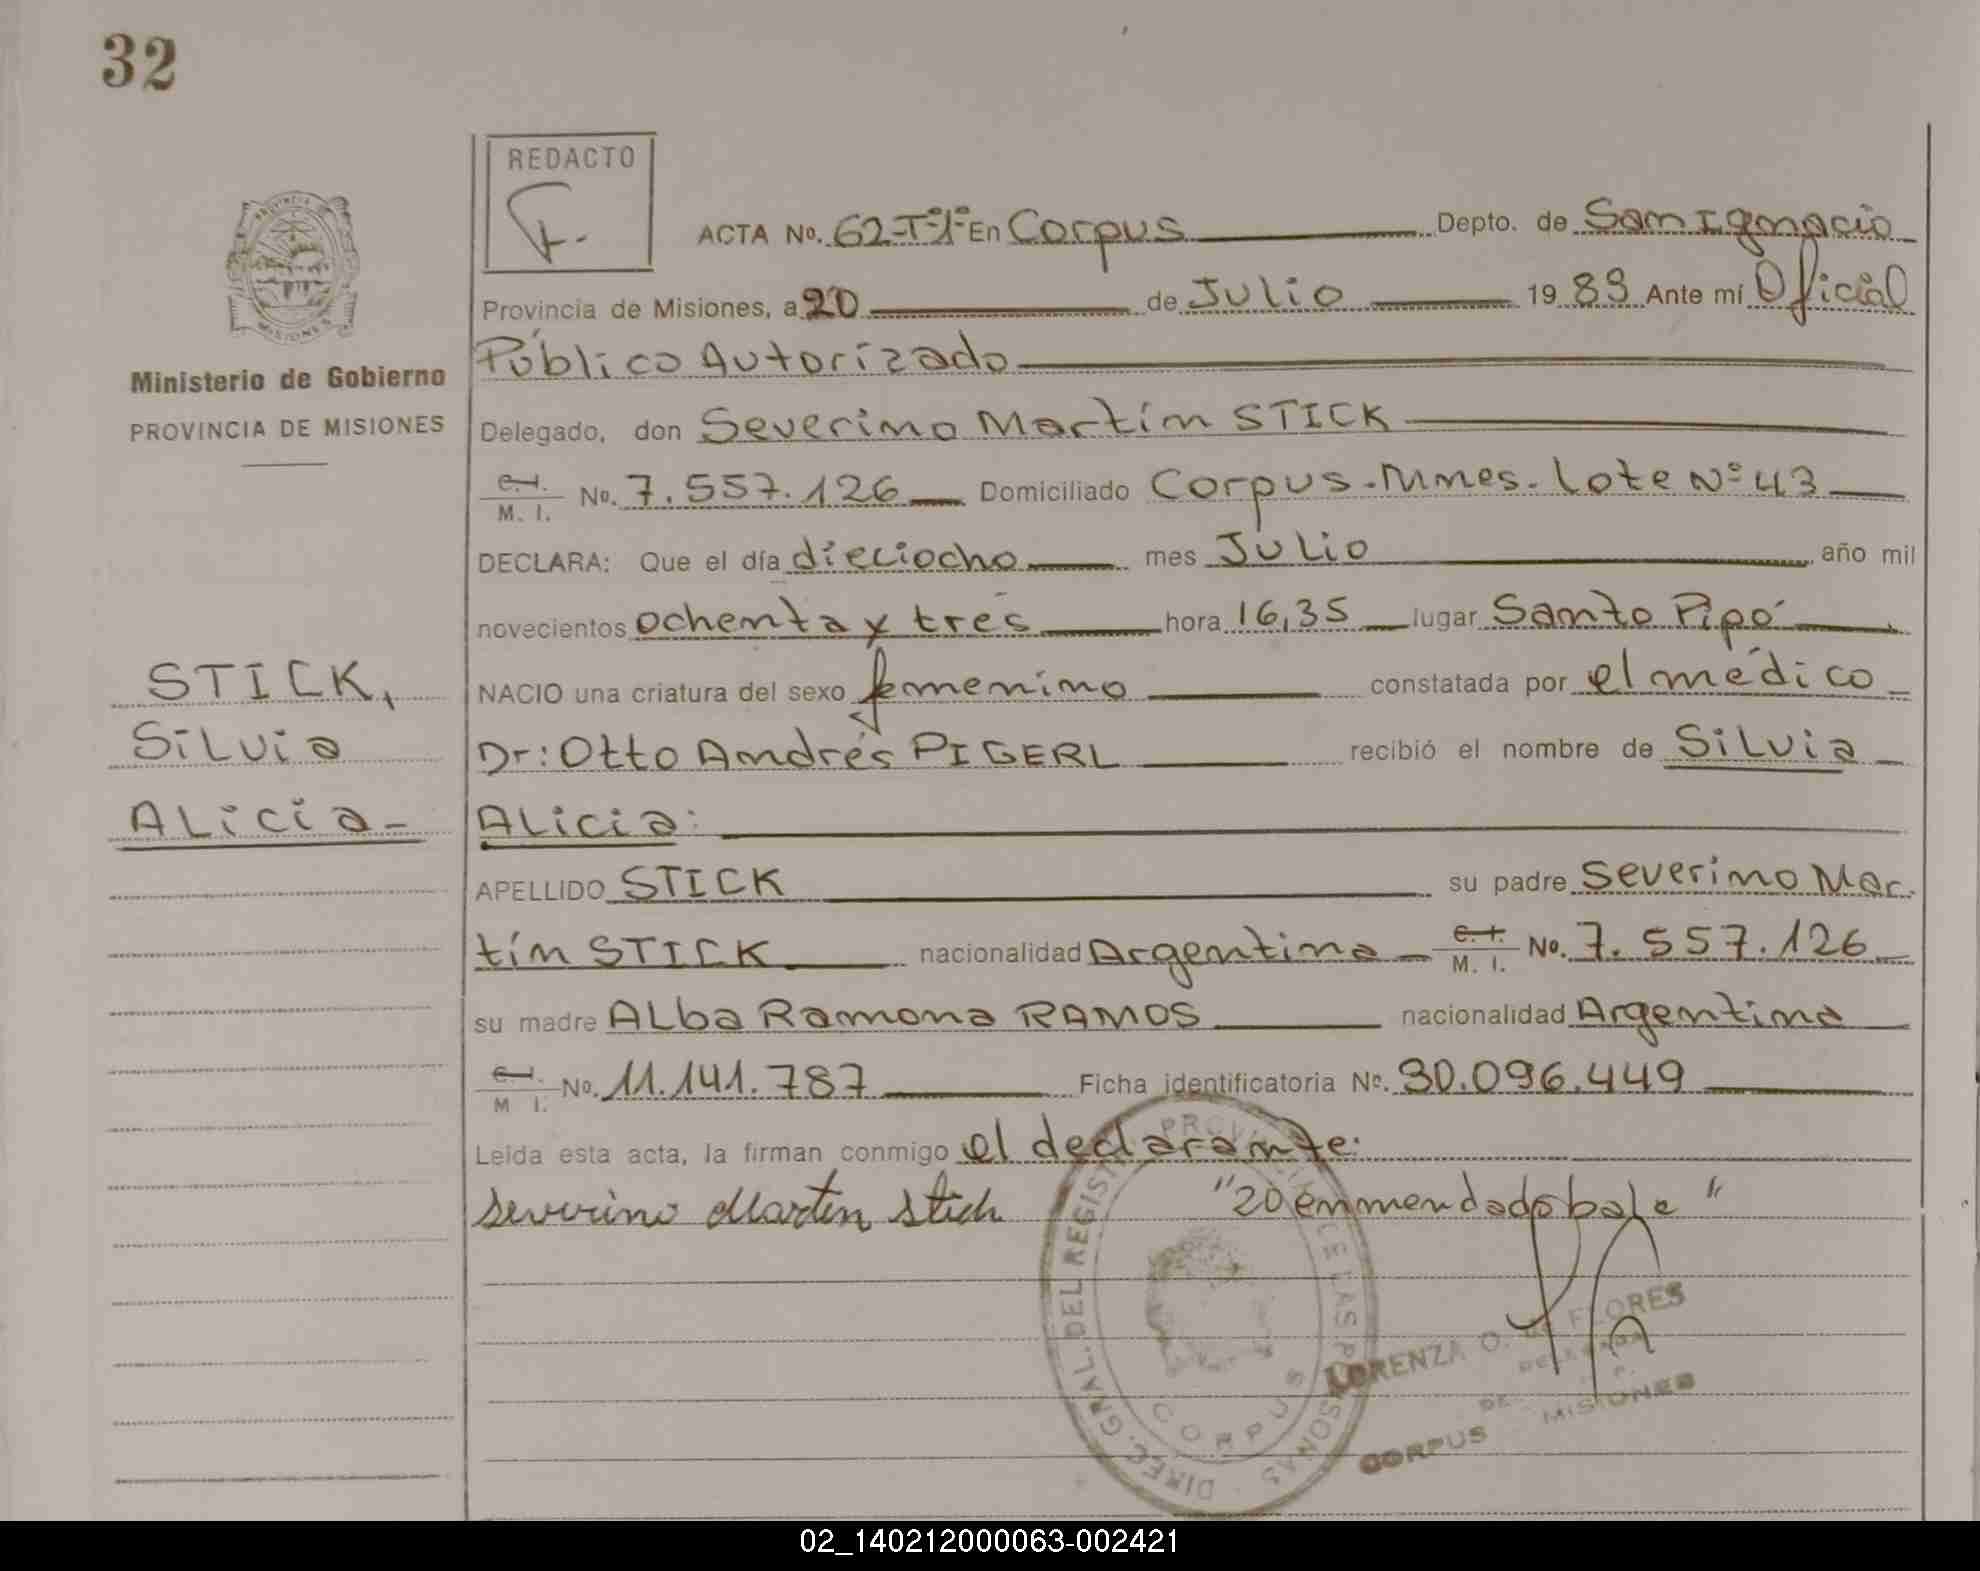 32
REDACTO
ACTA No. 62-Tº1º En Corpus Depto. de San Ignacio
Provincia de Misiones, a 20 de Julio 19 83 Ante mí Oficial
Público Autorizado
Ministerio de Gobierno
PROVINCIA DE MISIONES
Delegado, don Severino Martín STICK
C.I.
M. I. No. 7.557.126 Domiciliado Corpus.Mnes. Lote Nº 43
DECLARA: Que el día dieciocho mes Julio año mil
novecientos ochenta y tres hora 16,35 lugar Santo Pipó
NACIO una criatura del sexo femenino constatada por el médico
Dr: Otto Andrés PIGERL recibió el nombre de Silvia
Alicia:
STICK,
Silvia
Alicia-
APELLIDO STICK su padre Severino Mar.
tín STICK nacionalidad Argentina C.I.
M. I. No. 7.557.126
su madre Alba Ramona RAMOS nacionalidad Argentina
C.I.
M I. No. 11.141.787 Ficha identificatoria No. 30.096.449
Leída esta acta, la firman conmigo el declarante.
Severino Martin Stick "20 enmendado bale"
DIREC. GRAL. DEL REGIST PROV DE LAS PERSONAS
CORPUS
LORENZA O. DE FLORES
CORPUS MISIONES
02_140212000063-002421